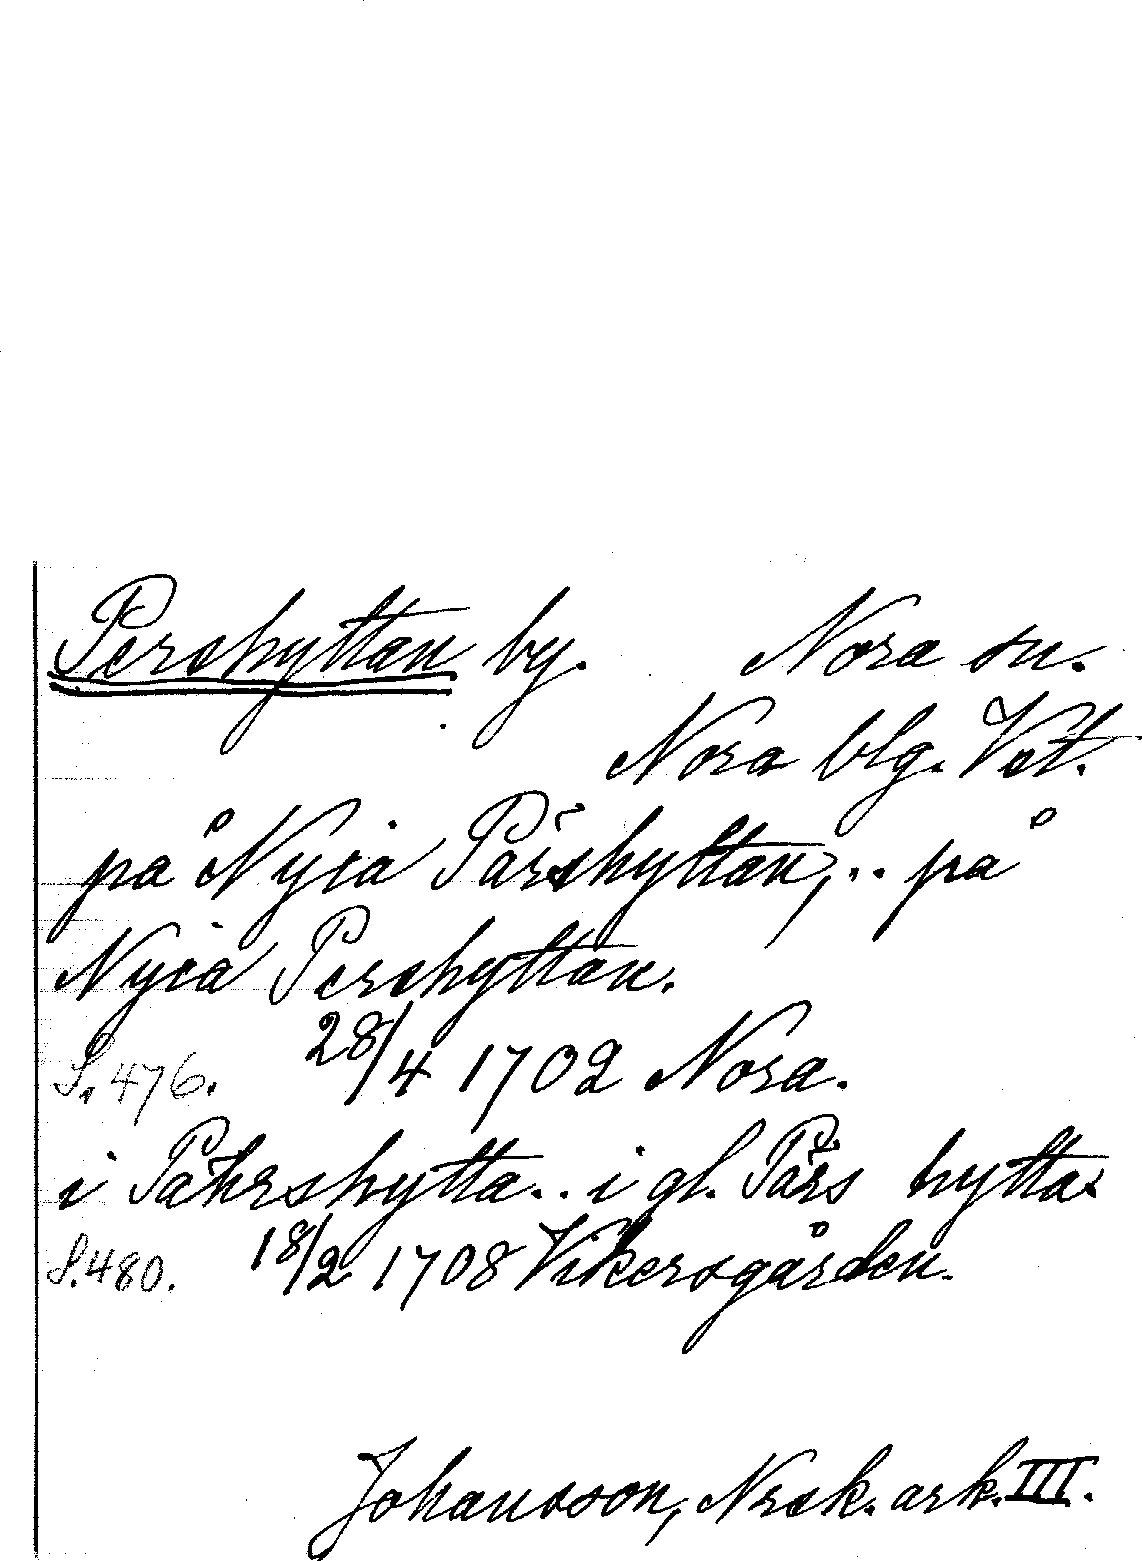 Pershyttan by. Nora sn.
Nora blg. Vst.
på Nyia Pärshyttan, .. på
Nyia Pershyttan.
S. 476. 28/4 1702 Nora.
i Påhrshytta .. i gl. Pärs hytta
S. 480. 18/2 1708 Vikersgården.
Johansson, Nrsk. ark. III.